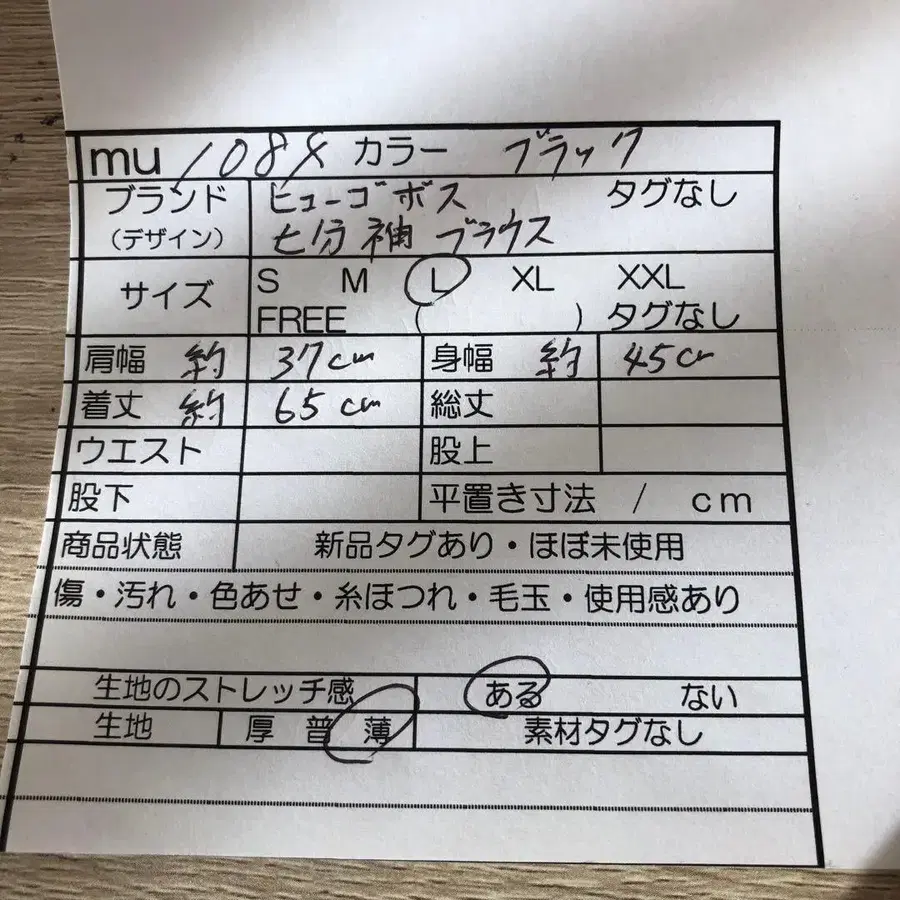 mu 108X カラー ブラック
ブランド ヒューゴボス タグなし
(デザイン) 七分袖 ブラウス
サイズ S M L XL XXL
FREE ( ) タグなし
肩幅 約 37cm 身幅 約 45cm
着丈 約 65cm 総丈
ウエスト 股上
股下 平置き寸法 / cm
商品状態 新品タグあり・ほぼ未使用
傷・汚れ・色あせ・糸ほつれ・毛玉・使用感あり
生地のストレッチ感 ある ない
生地 厚 普 薄 素材タグなし